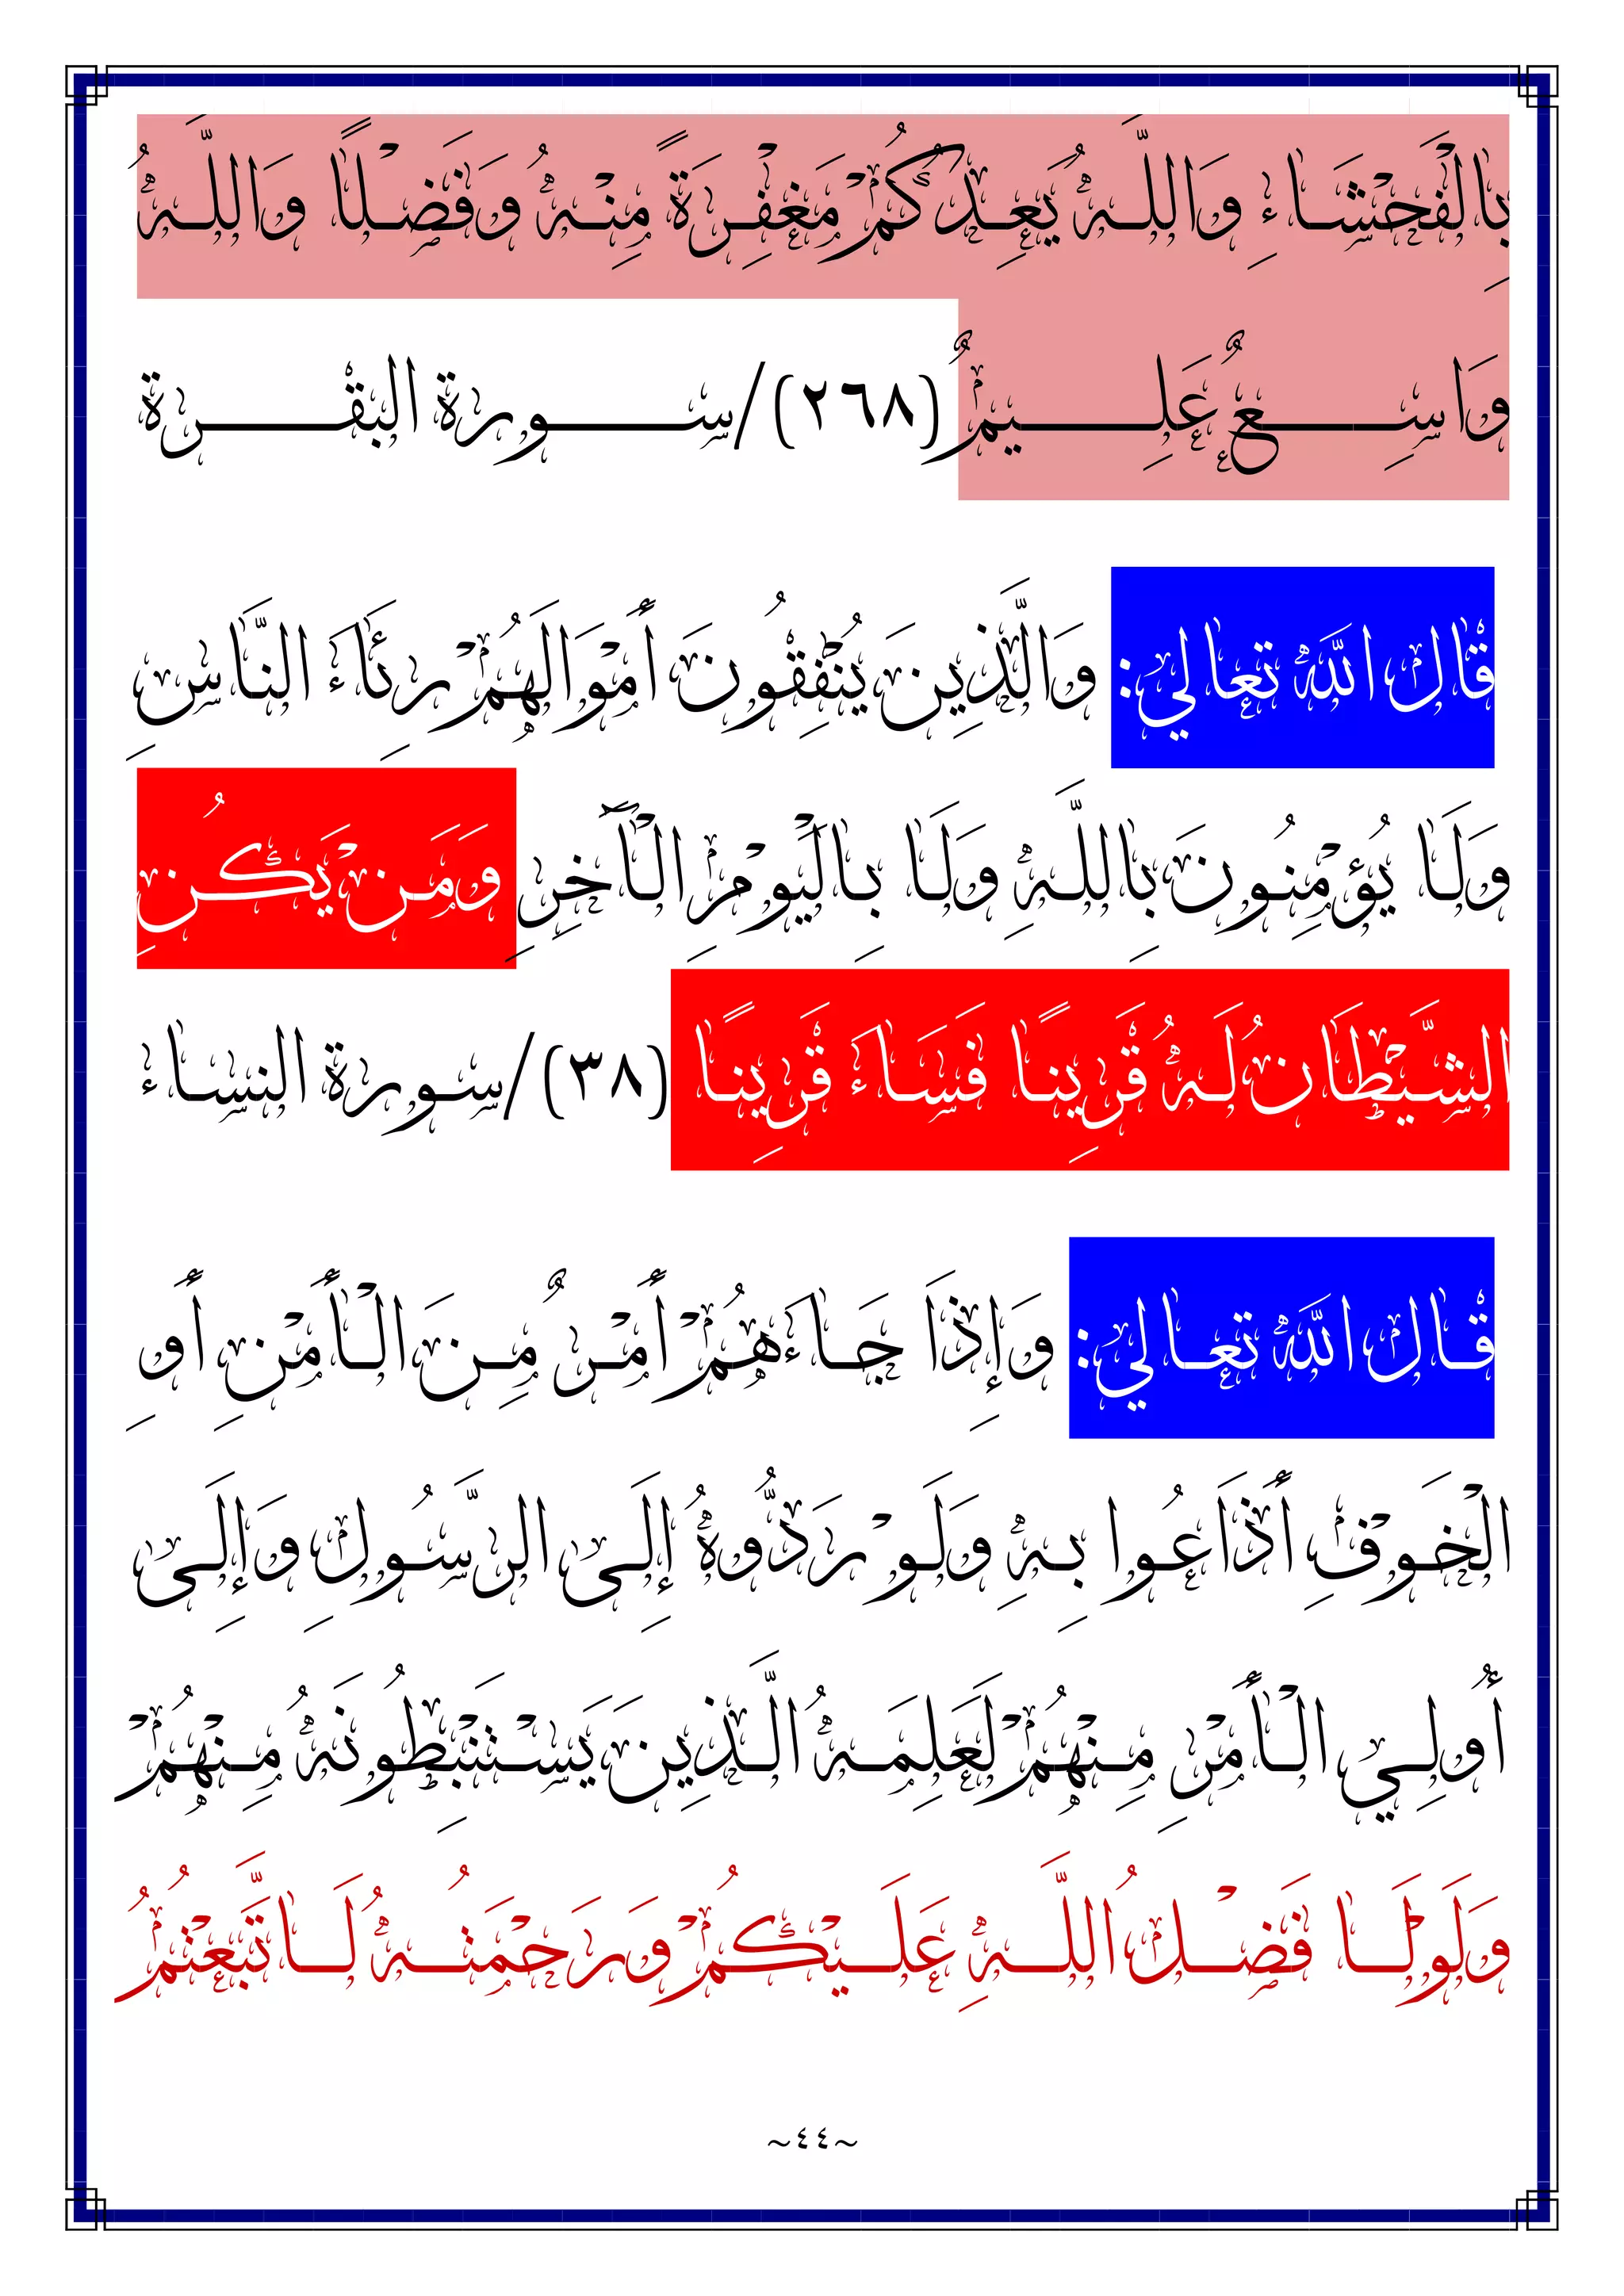 بِالْفَحْشَاءِ وَاللَّهُ يَعِدُكُمْ مَغْفِرَةً مِنْهُ وَفَضْلًا وَاللَّهُ
وَاسِعٌ عَلِيمٌ (٢٦٨)/سورة البقرة
قال الله تعالي: وَالَّذِينَ يُنْفِقُونَ أَمْوَالَهُمْ رِئَاءَ النَّاسِ
وَلَا يُؤْمِنُونَ بِاللَّهِ وَلَا بِالْيَوْمِ الْآخِرِ وَمَنْ يَكُنِ
الشَّيْطَانُ لَهُ قَرِينًا فَسَاءَ قَرِينًا (٣٨)/سورة النساء
قال الله تعالي: وَإِذَا جَاءَهُمْ أَمْرٌ مِنَ الْأَمْنِ أَوِ
الْخَوْفِ أَذَاعُوا بِهِ وَلَوْ رَدُّوهُ إِلَى الرَّسُولِ وَإِلَى
أُولِي الْأَمْرِ مِنْهُمْ لَعَلِمَهُ الَّذِينَ يَسْتَنْبِطُونَهُ مِنْهُمْ
وَلَوْلَا فَضْلُ اللَّهِ عَلَيْكُمْ وَرَحْمَتُهُ لَاتَّبَعْتُمُ
~٤٤~